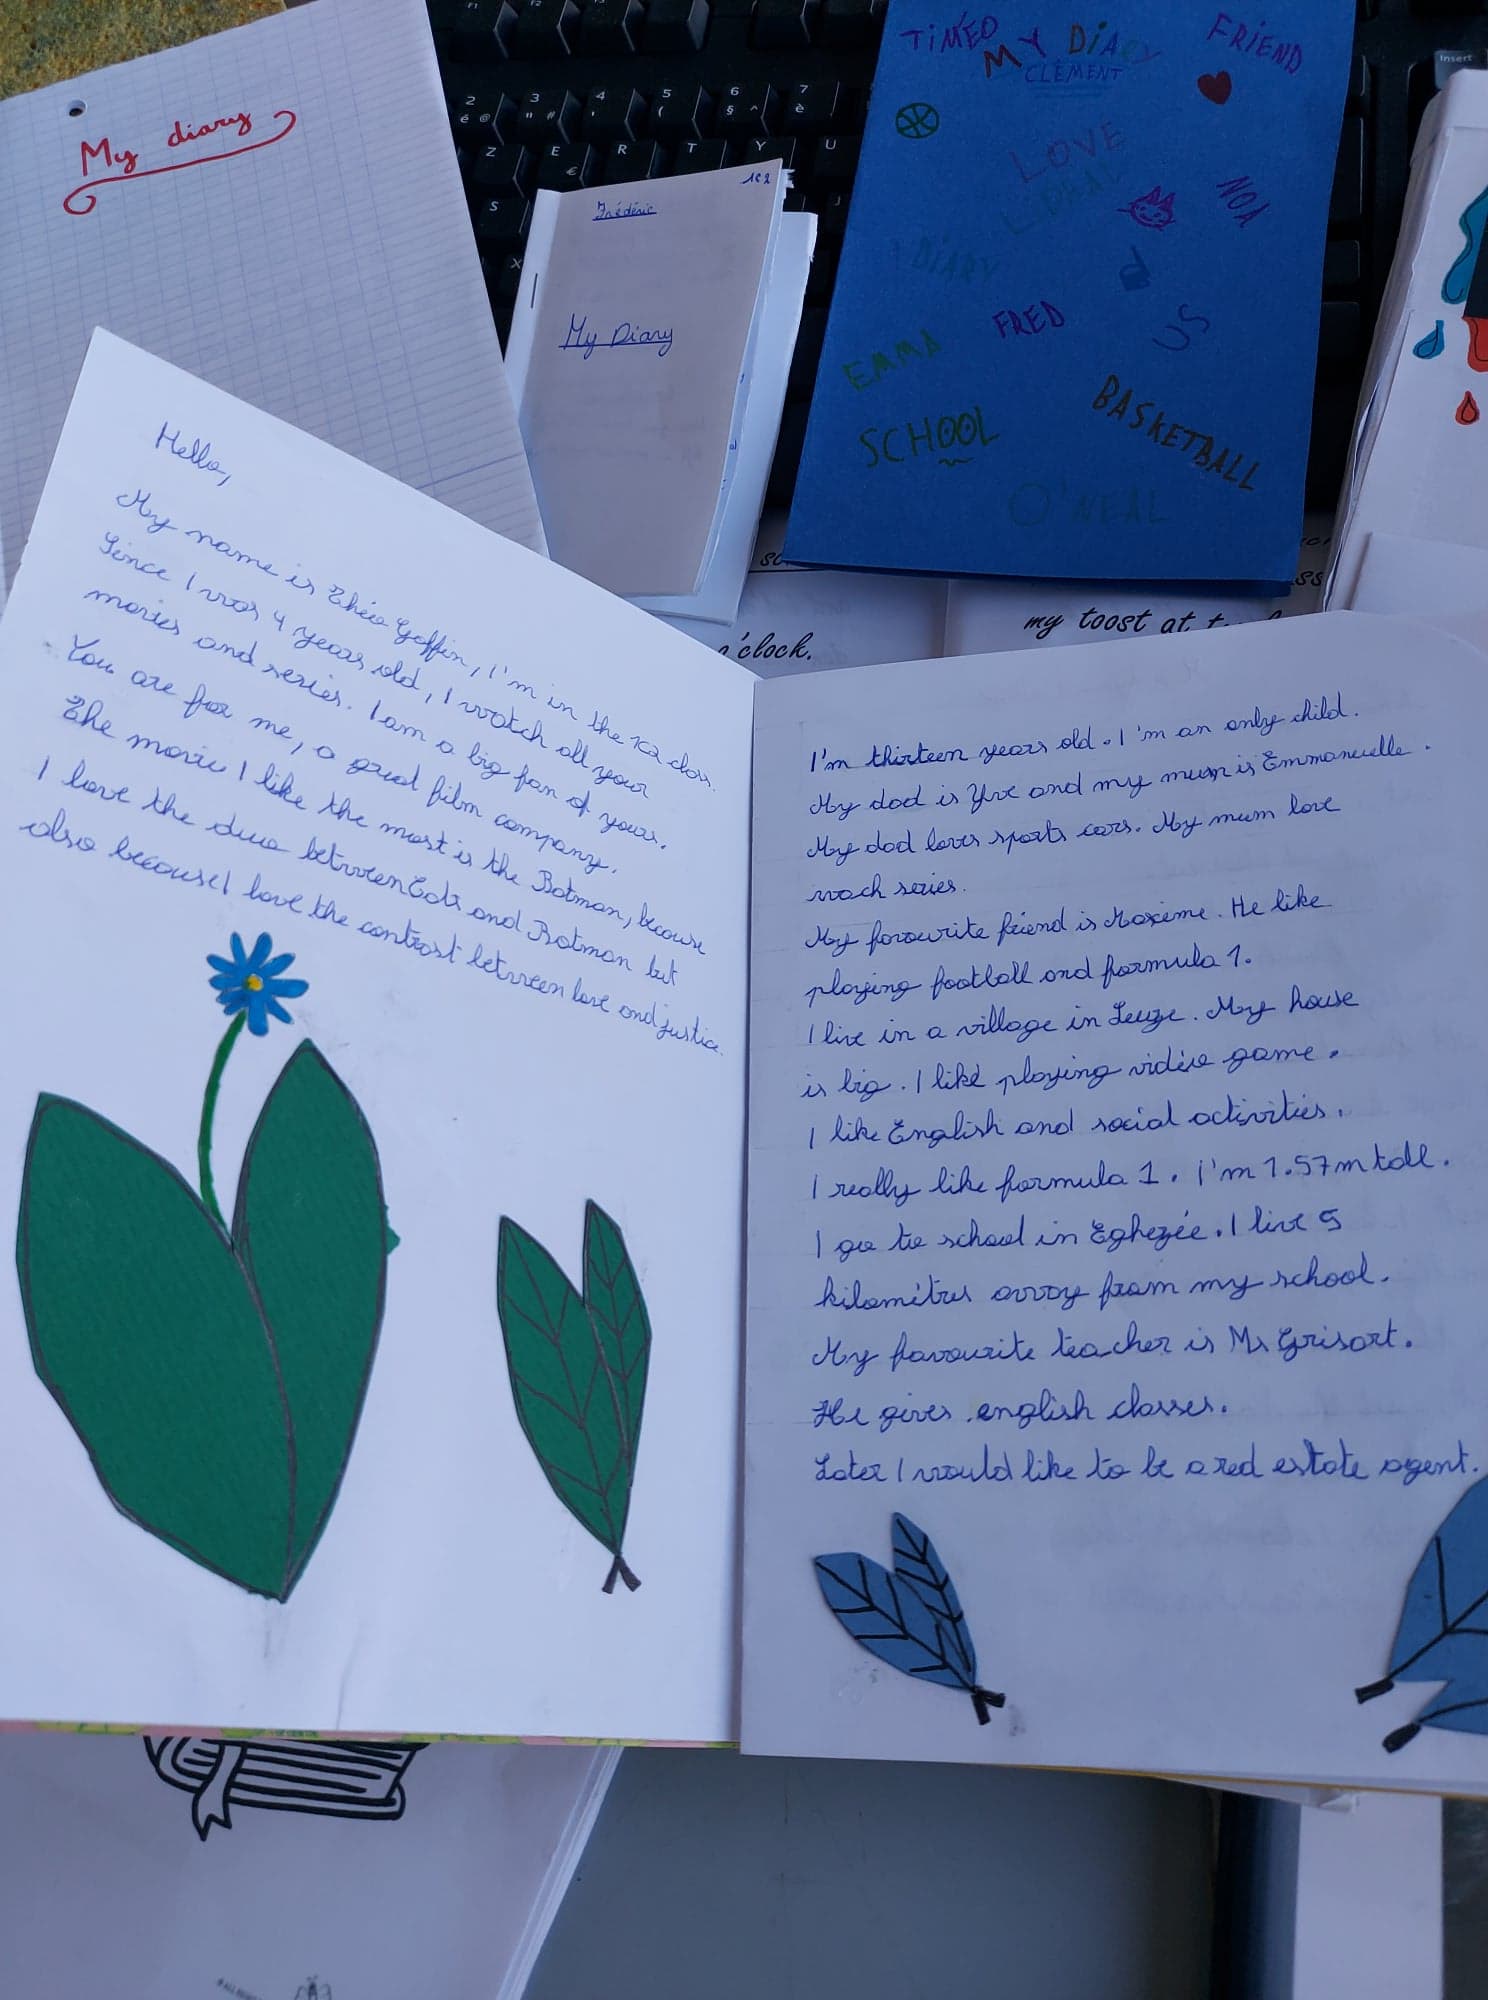 My diary
Frédéric
1C2
My Diary
TIMEO
FRIEND
MY DIARY
CLÉMENT
LOVE
NOA
DIARY
FRED
US
EMMA
BASKETBALL
SCHOOL
O'NEAL
o'clock.
my toost at
Hello,
My name is Théo Goffin, I'm in the 1C2 class.
Since I was 4 years old, I watch all your
movies and series. I am a big fan of yours.
You are for me, a great film company.
The movie I like the most is the Batman, because
I love the duo between Cat and Batman but
also because I love the contrast between love and justice.
I'm thirteen years old. I'm an only child.
My dad is Yve and my mum is Emmanuelle.
My dad loves sports cars. My mum love
wach series.
My favourite friend is Maxime. He like
playing football and formula 1.
I live in a village in Leuze. My house
is big. I like playing vidéo game.
I like English and social activities.
I really like formula 1. I'm 1.57m tall.
I go to school in Eghezée. I live 5
kilométres away from my school.
My favourite teacher is Mr Grisart.
He gives english classes.
Later I would like to be a real estate agent.
Insert
2 3 4 5 6 7
Z E R T Y U
S
X